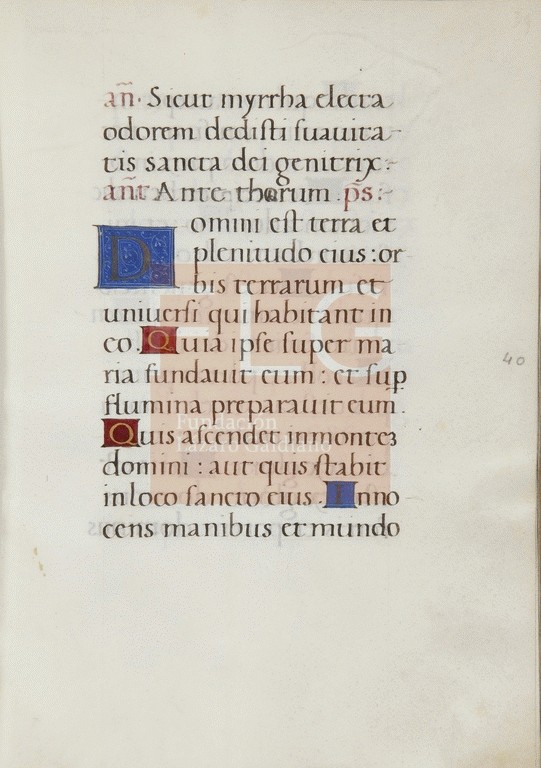 an̄. Sicut myrrha electa
odorem dedisti suauita-
tis sancta dei genitrix:-
an̄t Ante thorum. p̄s:-
Domini est terra et
plenitudo eius: or
bis terrarum et
uniuersi qui habitant in
eo. Quia ipse super ma
ria fundauit eum: et sup
flumina preparauit eum.
Quis ascendet inmontez
domini: aut quis stabit
inloco sancto eius. Inno
cens manibus et mundo
40
FLG
Fundación
Lázaro Galdiano